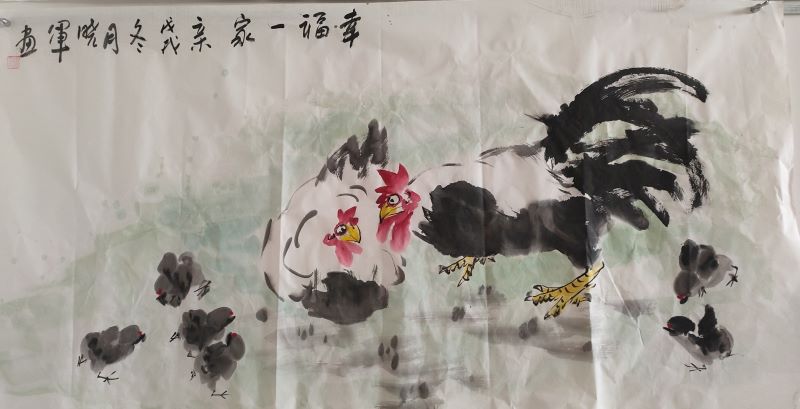 幸福一家亲戊戌冬月晓军画